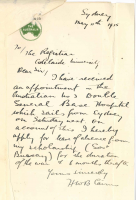 Sydney
May 11th 1915
To/ The Registrar
Adelaide University
Dear Sir/ I have received
an appointment in the
Australian No 3 Double
General Base Hospital
which sails from Sydney
on Saturday next. On
account of this I hereby
apply for leave of absence from
my scholarship (
Bursary) for the duration
of the war & 1 month after
Yours sincerely